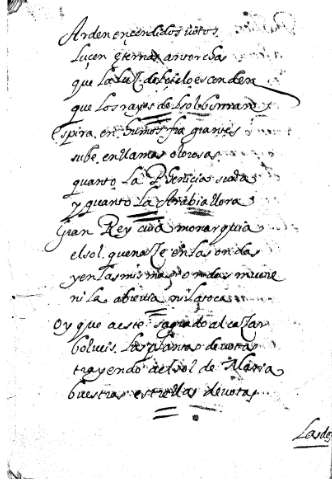 Arden encendidos votos
Lucen eternas antorchas
que la luz del cielo esconden
que los rayes del sol
Espira, en humos fragantes
sube, en llamas olorosas
quanto La Phenicia suda
y quanto La Arabia llora
Gran Rey cuia monarquia
el sol, que naze en las ondas
y en las mismas ondas muere
ni la abrevia ni la toca
Oy que a este sagrado alcazar
bolveis, las plantas devotas
trayendo al sol de Maria
buestras estrellas devotas
Las de